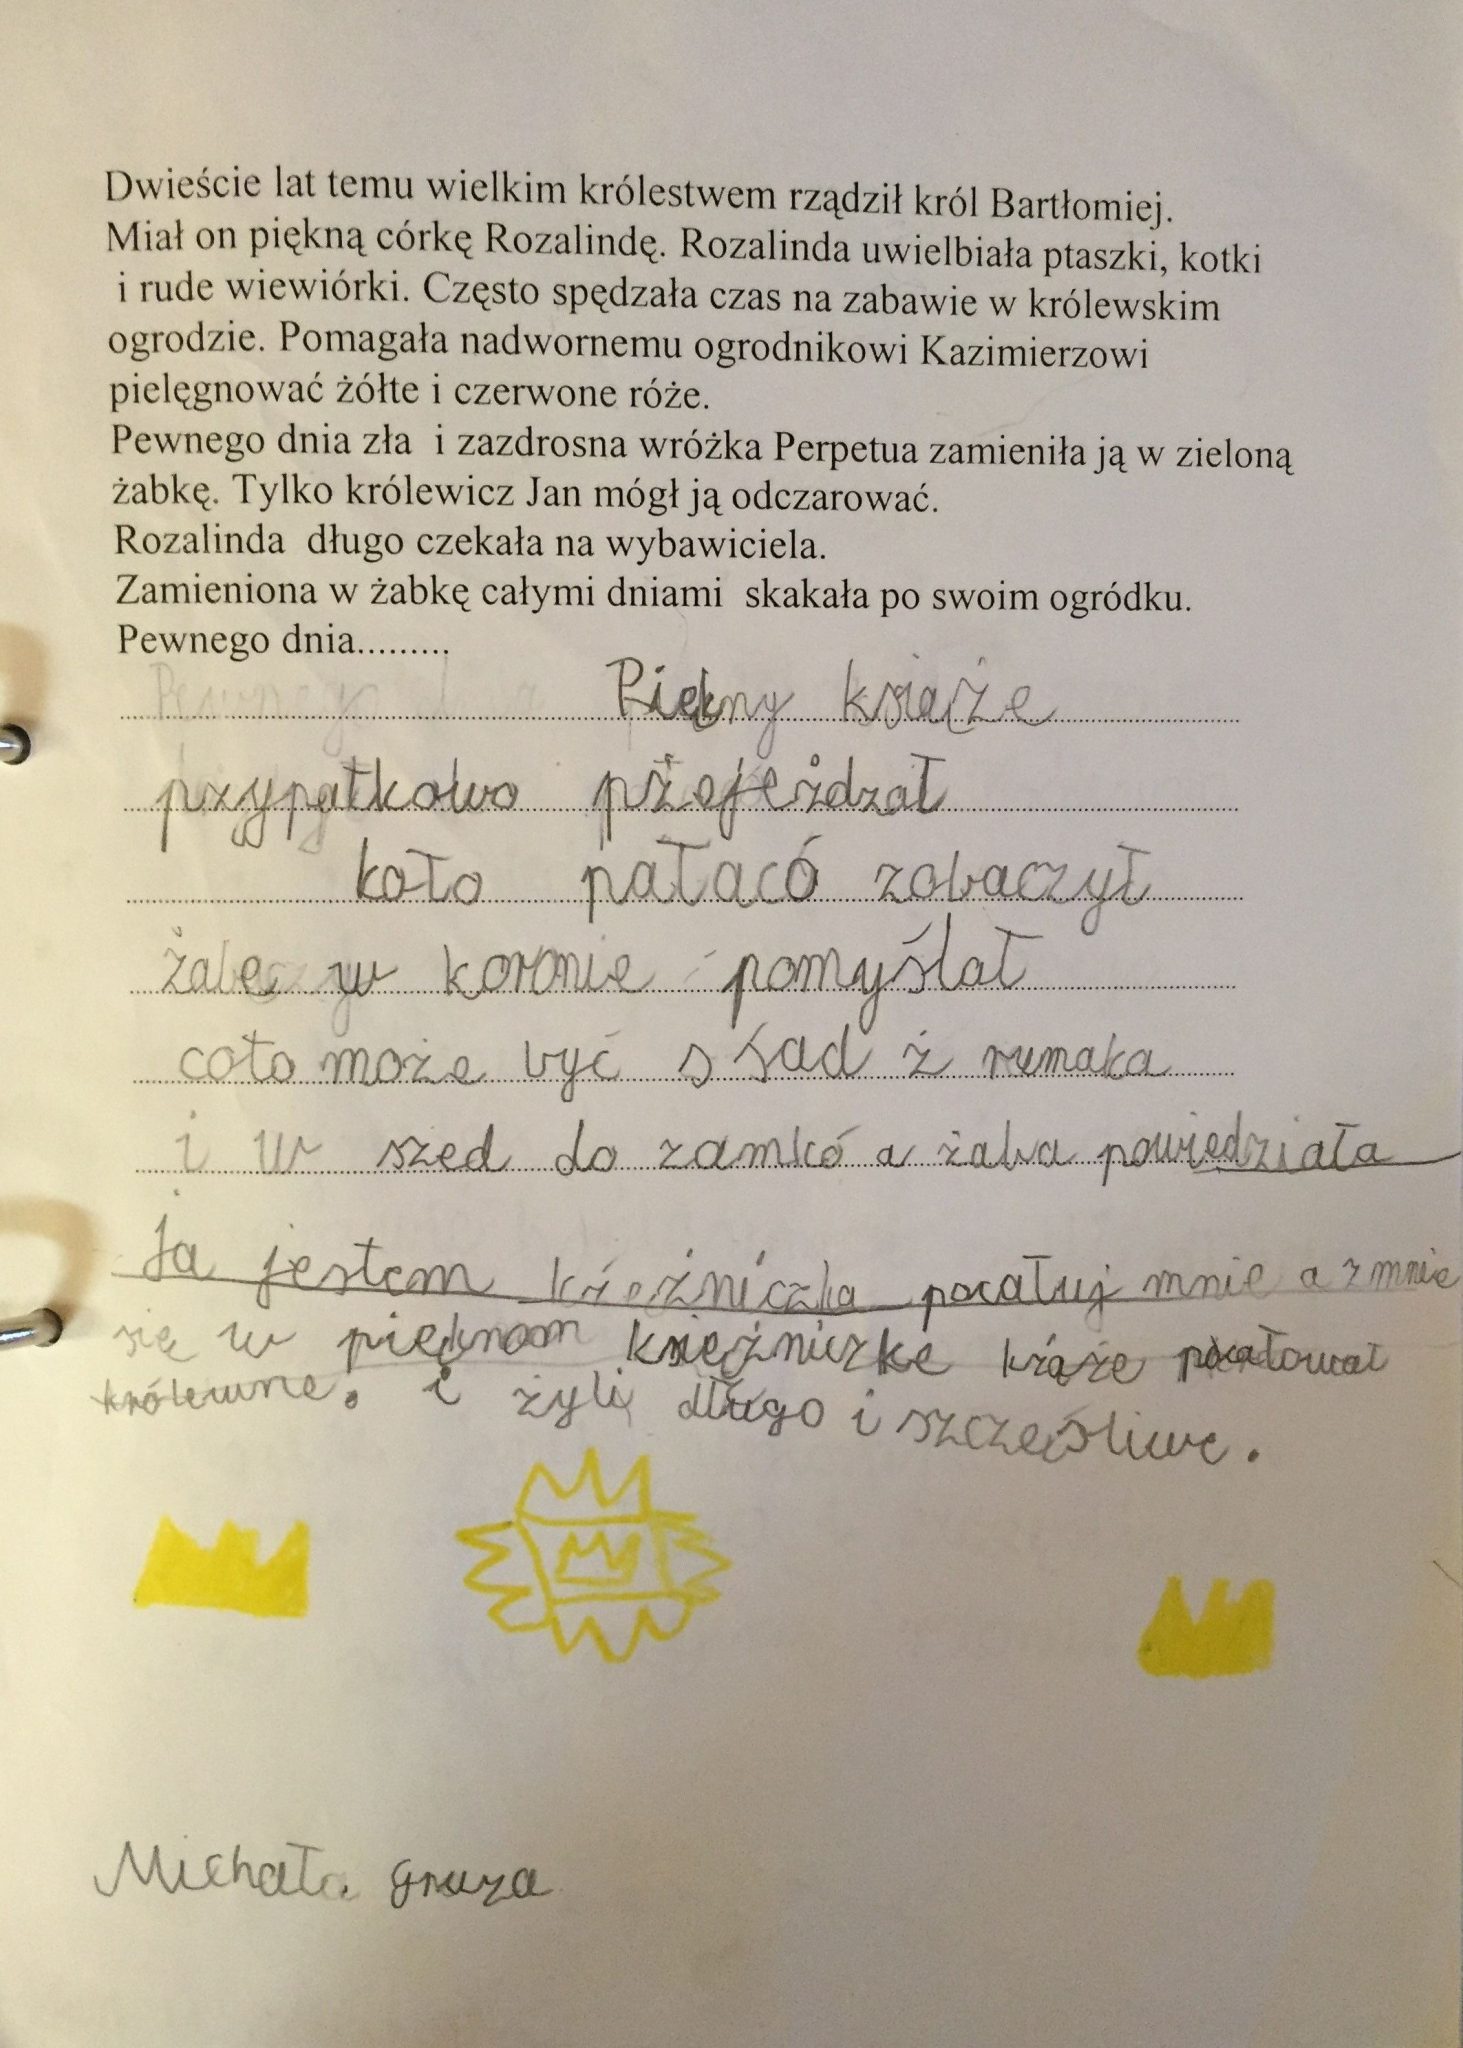 Dwieście lat temu wielkim królestwem rządził król Bartłomiej.
Miał on piękną córkę Rozalindę. Rozalinda uwielbiała ptaszki, kotki
i rude wiewiórki. Często spędzała czas na zabawie w królewskim
ogrodzie. Pomagała nadwornemu ogrodnikowi Kazimierzowi
pielęgnować żółte i czerwone róże.
Pewnego dnia zła i zazdrosna wróżka Perpetua zamieniła ją w zieloną
żabkę. Tylko królewicz Jan mógł ją odczarować.
Rozalinda długo czekała na wybawiciela.
Zamieniona w żabkę całymi dniami skakała po swoim ogródku.
Pewnego dnia.........
Piękny książe
przypatkowo pżejeżdzał
koło pałacó zobaczył
żabę w koronie pomyślał
coto może być s śad ż rumaka
i w szed do zamkó a żaba powiedziała
Ja jestem księżniczka pocałuj mnie a zmnie
się w pięknom księżniczkę książe pocałował
królewne. i żyli długo i szczęśliwe.
Michała gruza